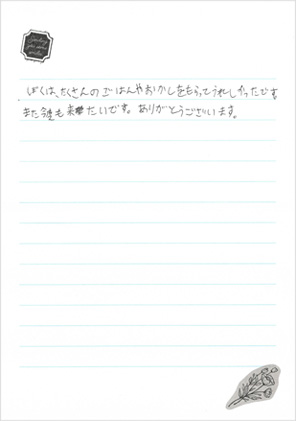 ぼくは、たくさんのごはんやおかしをもらってうれしかったです。
また今度も来たいです。ありがとうございます。